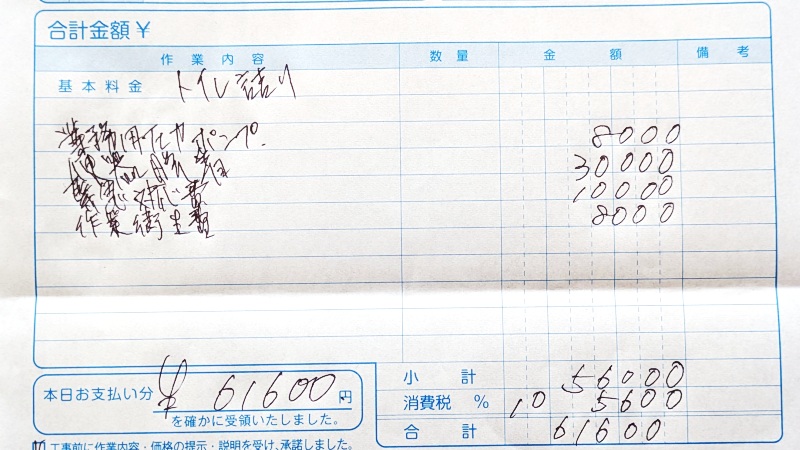 合計金額 ¥
作業内容 数量 金額 備考
基本料金 トイレ詰り
業務用圧力ポンプ 8000
便器脱着 30000
緊急対応費 10000
作業衛生費 8000
小計 56000
消費税 % 10 5600
合計 61600
本日お支払い分 ¥ 61600 円
を確かに受領いたしました。
工事前に作業内容・価格の提示・説明を受け、承諾しました。